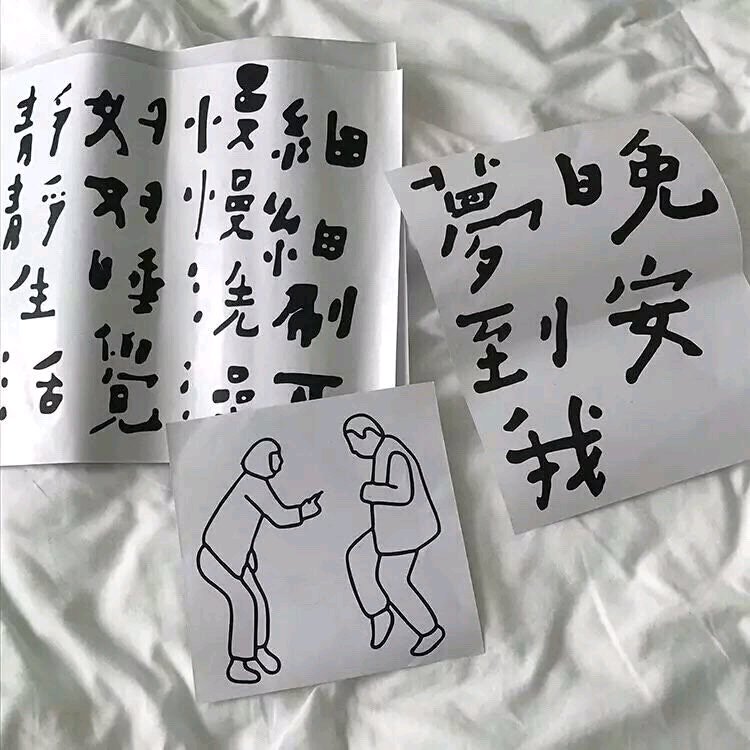 細細刷牙
慢慢洗澡
好好睡覺
靜靜生活
晚安
夢到我